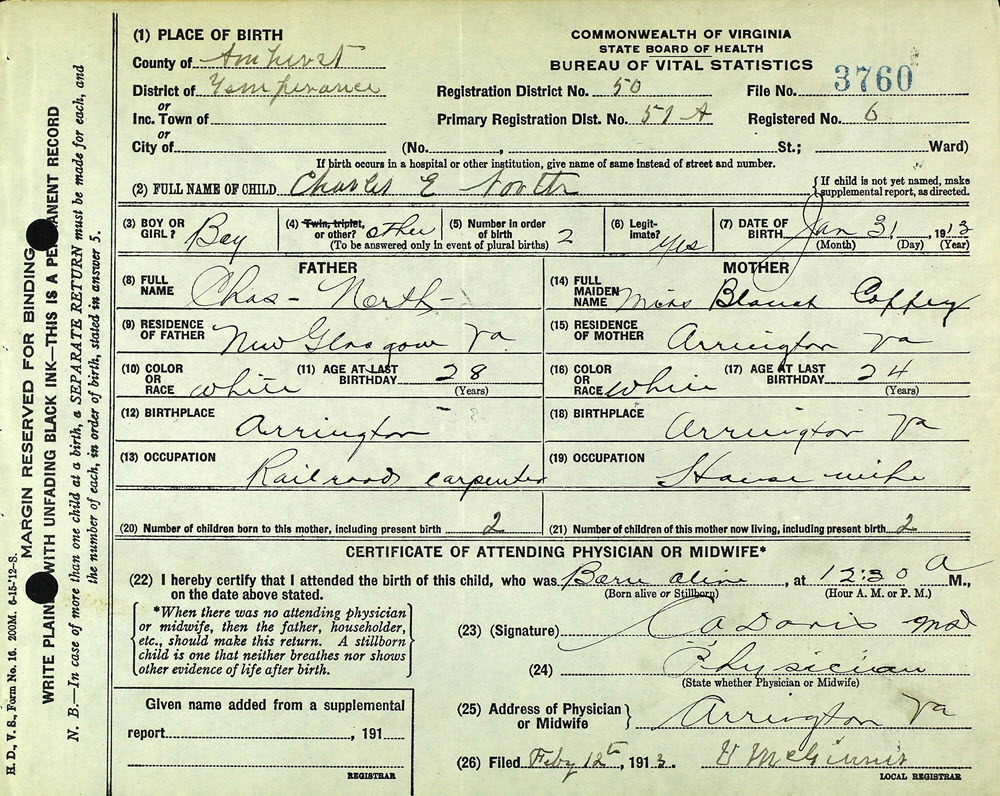 (1) PLACE OF BIRTH
COMMONWEALTH OF VIRGINIA
STATE BOARD OF HEALTH
BUREAU OF VITAL STATISTICS
County of Amherst
District of Temperance
Registration District No. 50
File No. 3760
or
Inc. Town of
Primary Registration Dist. No. 51 A
Registered No. 6
or
City of
(No. , St.; Ward)
If birth occurs in a hospital or other institution, give name of same instead of street and number.
(2) FULL NAME OF CHILD Charles E North
{If child is not yet named, make supplemental report, as directed.
(3) BOY OR GIRL? Boy
(4) Twin, triplet, or other? other
(5) Number in order of birth 2
(To be answered only in event of plural births)
(6) Legitimate? Yes
(7) DATE OF BIRTH Jan 31, 1913
(Month) (Day) (Year)
FATHER
(8) FULL NAME Chas- North-
(9) RESIDENCE OF FATHER New Glasgow Va
(10) COLOR OR RACE white
(11) AGE AT LAST BIRTHDAY 28
(Years)
(12) BIRTHPLACE Arrington
(13) OCCUPATION Railroad carpenter
MOTHER
(14) FULL MAIDEN NAME Miss Blanch Coffey
(15) RESIDENCE OF MOTHER Arrington Va
(16) COLOR OR RACE White
(17) AGE AT LAST BIRTHDAY 24
(Years)
(18) BIRTHPLACE Arrington Va
(19) OCCUPATION House wife
(20) Number of children born to this mother, including present birth 2
(21) Number of children of this mother now living, including present birth 2
CERTIFICATE OF ATTENDING PHYSICIAN OR MIDWIFE*
(22) I hereby certify that I attended the birth of this child, who was Born alive, at 12:30 A M.,
on the date above stated. (Born alive or Stillborn) (Hour A. M. or P. M.)
*When there was no attending physician
or midwife, then the father, householder,
etc., should make this return. A stillborn
child is one that neither breathes nor shows
other evidence of life after birth.
(23) (Signature) Davis MD
(24) Physician
(State whether Physician or Midwife)
Given name added from a supplemental
report , 191
REGISTRAR
(25) Address of Physician or Midwife } Arrington Va
(26) Filed Feby 12th, 1913. V McGinnis
LOCAL REGISTRAR
MARGIN RESERVED FOR BINDING
WRITE PLAIN WITH UNFADING BLACK INK—THIS IS A PE ANENT RECORD
N. B.—In case of more than one child at a birth, a SEPARATE RETURN must be made for each, and
the number of each, in order of birth, stated in answer 5.
H. D., V. S., Form No. 16. 200M. 6-15-'12-S.